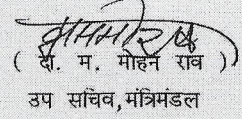 ( दा. म. मोहन राव )
उप सचिव,मंत्रिमंडल